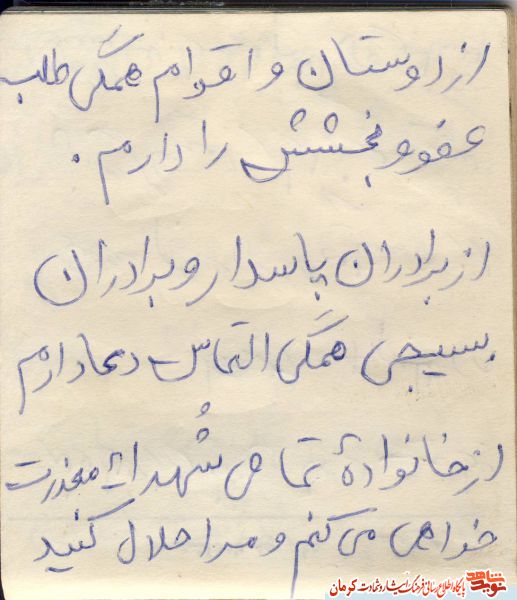 از دوستان و اقوام همگی طلب
عفو و بخشش را دارم.
از برادران پاسدار و برادران
بسیجی همگی التماس دعا دارم
از خانوادهٔ تمامی شُهدا معذرت
خواهی می کنم و مرا حلال کنید
نوید شاهد
پایگاه اطلاع رسانی فرهنگ ایثار و شهادت کرمان